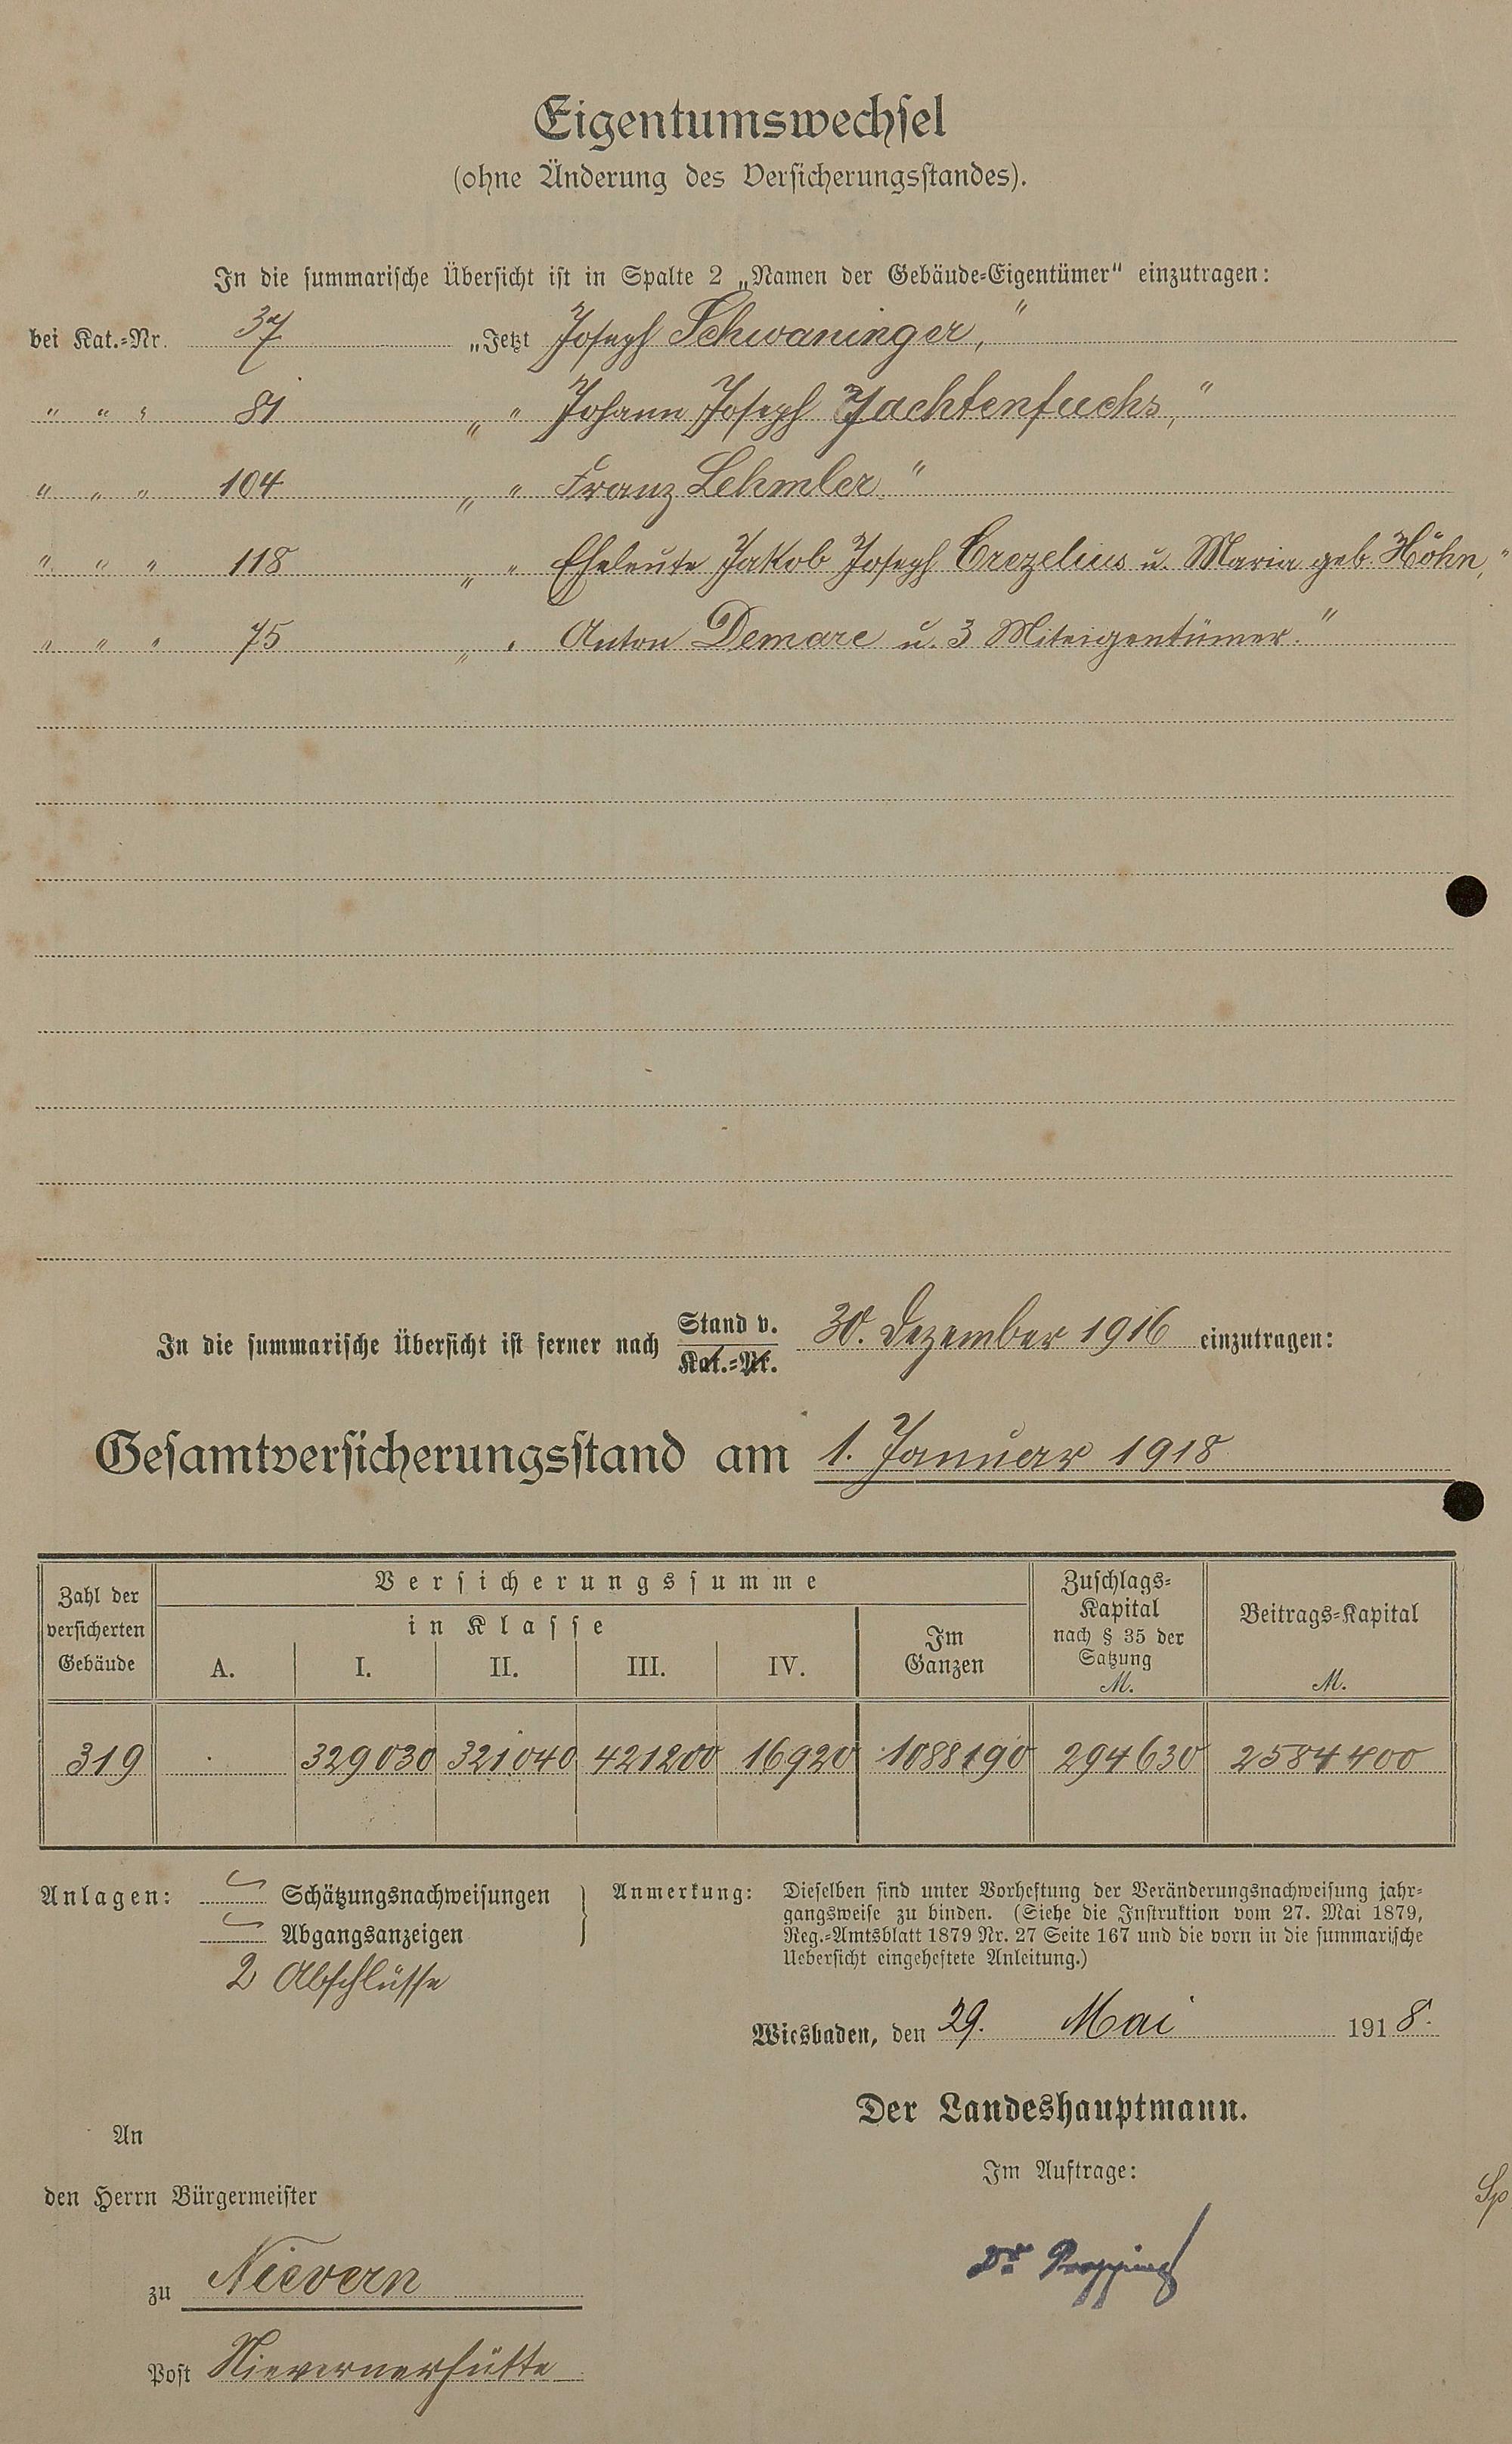 Eigentumswechsel
(ohne Änderung des Versicherungsstandes).
In die summarische Übersicht ist in Spalte 2 „Namen der Gebäude-Eigentümer" einzutragen:
bei Kat.-Nr. 37 „Jetzt Joseph Schwaninger,"
" " " 81 „ " Johann Joseph Jachtenfuchs,"
" " " 104 „ " Franz Lehmler"
" " " 118 „ " Eheleute Jakob Joseph Crezelius u. Maria geb. Höhn,"
" " " 75 „ " Anton Demare u. 3 Miteigentümer."
In die summarische Übersicht ist ferner nach Stand v. 30. Dezember 1916 einzutragen:
Kat.-Nr.
Gesamtversicherungsstand am 1. Januar 1918
Zahl der versicherten Gebäude
Versicherungssumme
in Klasse
A. I. II. III. IV.
Im Ganzen
Zuschlags-Kapital nach § 35 der Satzung M.
Beitrags-Kapital M.
319 . 329030 321040 421200 16920 1088190 294630 2584400
Anlagen: Schätzungsnachweisungen
Abgangsanzeigen
2 Abschlüsse
Anmerkung: Dieselben sind unter Vorheftung der Veränderungsnachweisung jahr-
gangsweise zu binden. (Siehe die Instruktion vom 27. Mai 1879,
Reg.-Amtsblatt 1879 Nr. 27 Seite 167 und die vorn in die summarische
Uebersicht eingeheftete Anleitung.)
Wiesbaden, den 29. Mai 1918.
Der Landeshauptmann.
Im Auftrage:
Dr.
An
den Herrn Bürgermeister
zu Nievern
Post Nievernerhütte
Sp